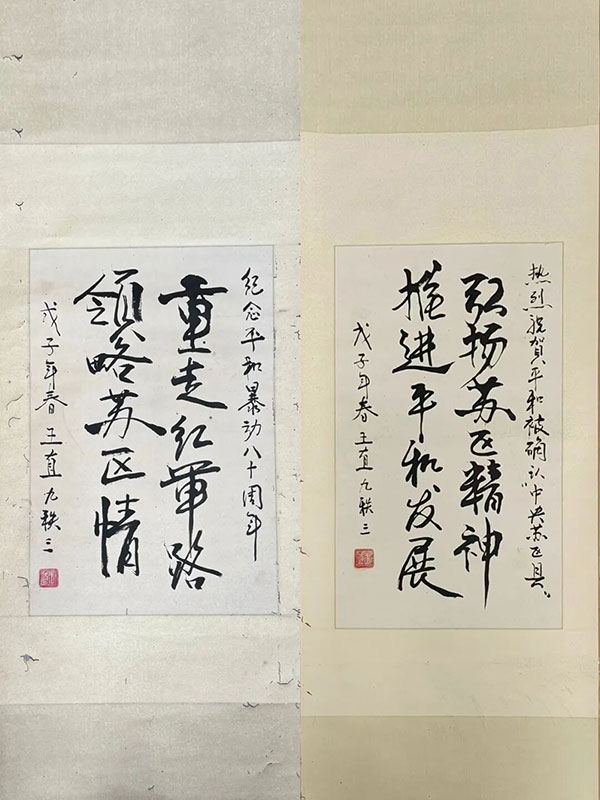 纪念平和暴动八十周年
重走红军路
领略苏区情
戊子年春 王直 九秩三
热烈祝贺平和被确认中央苏区县。
弘扬苏区精神
推进平和发展
戊子年春 王直 九秩三